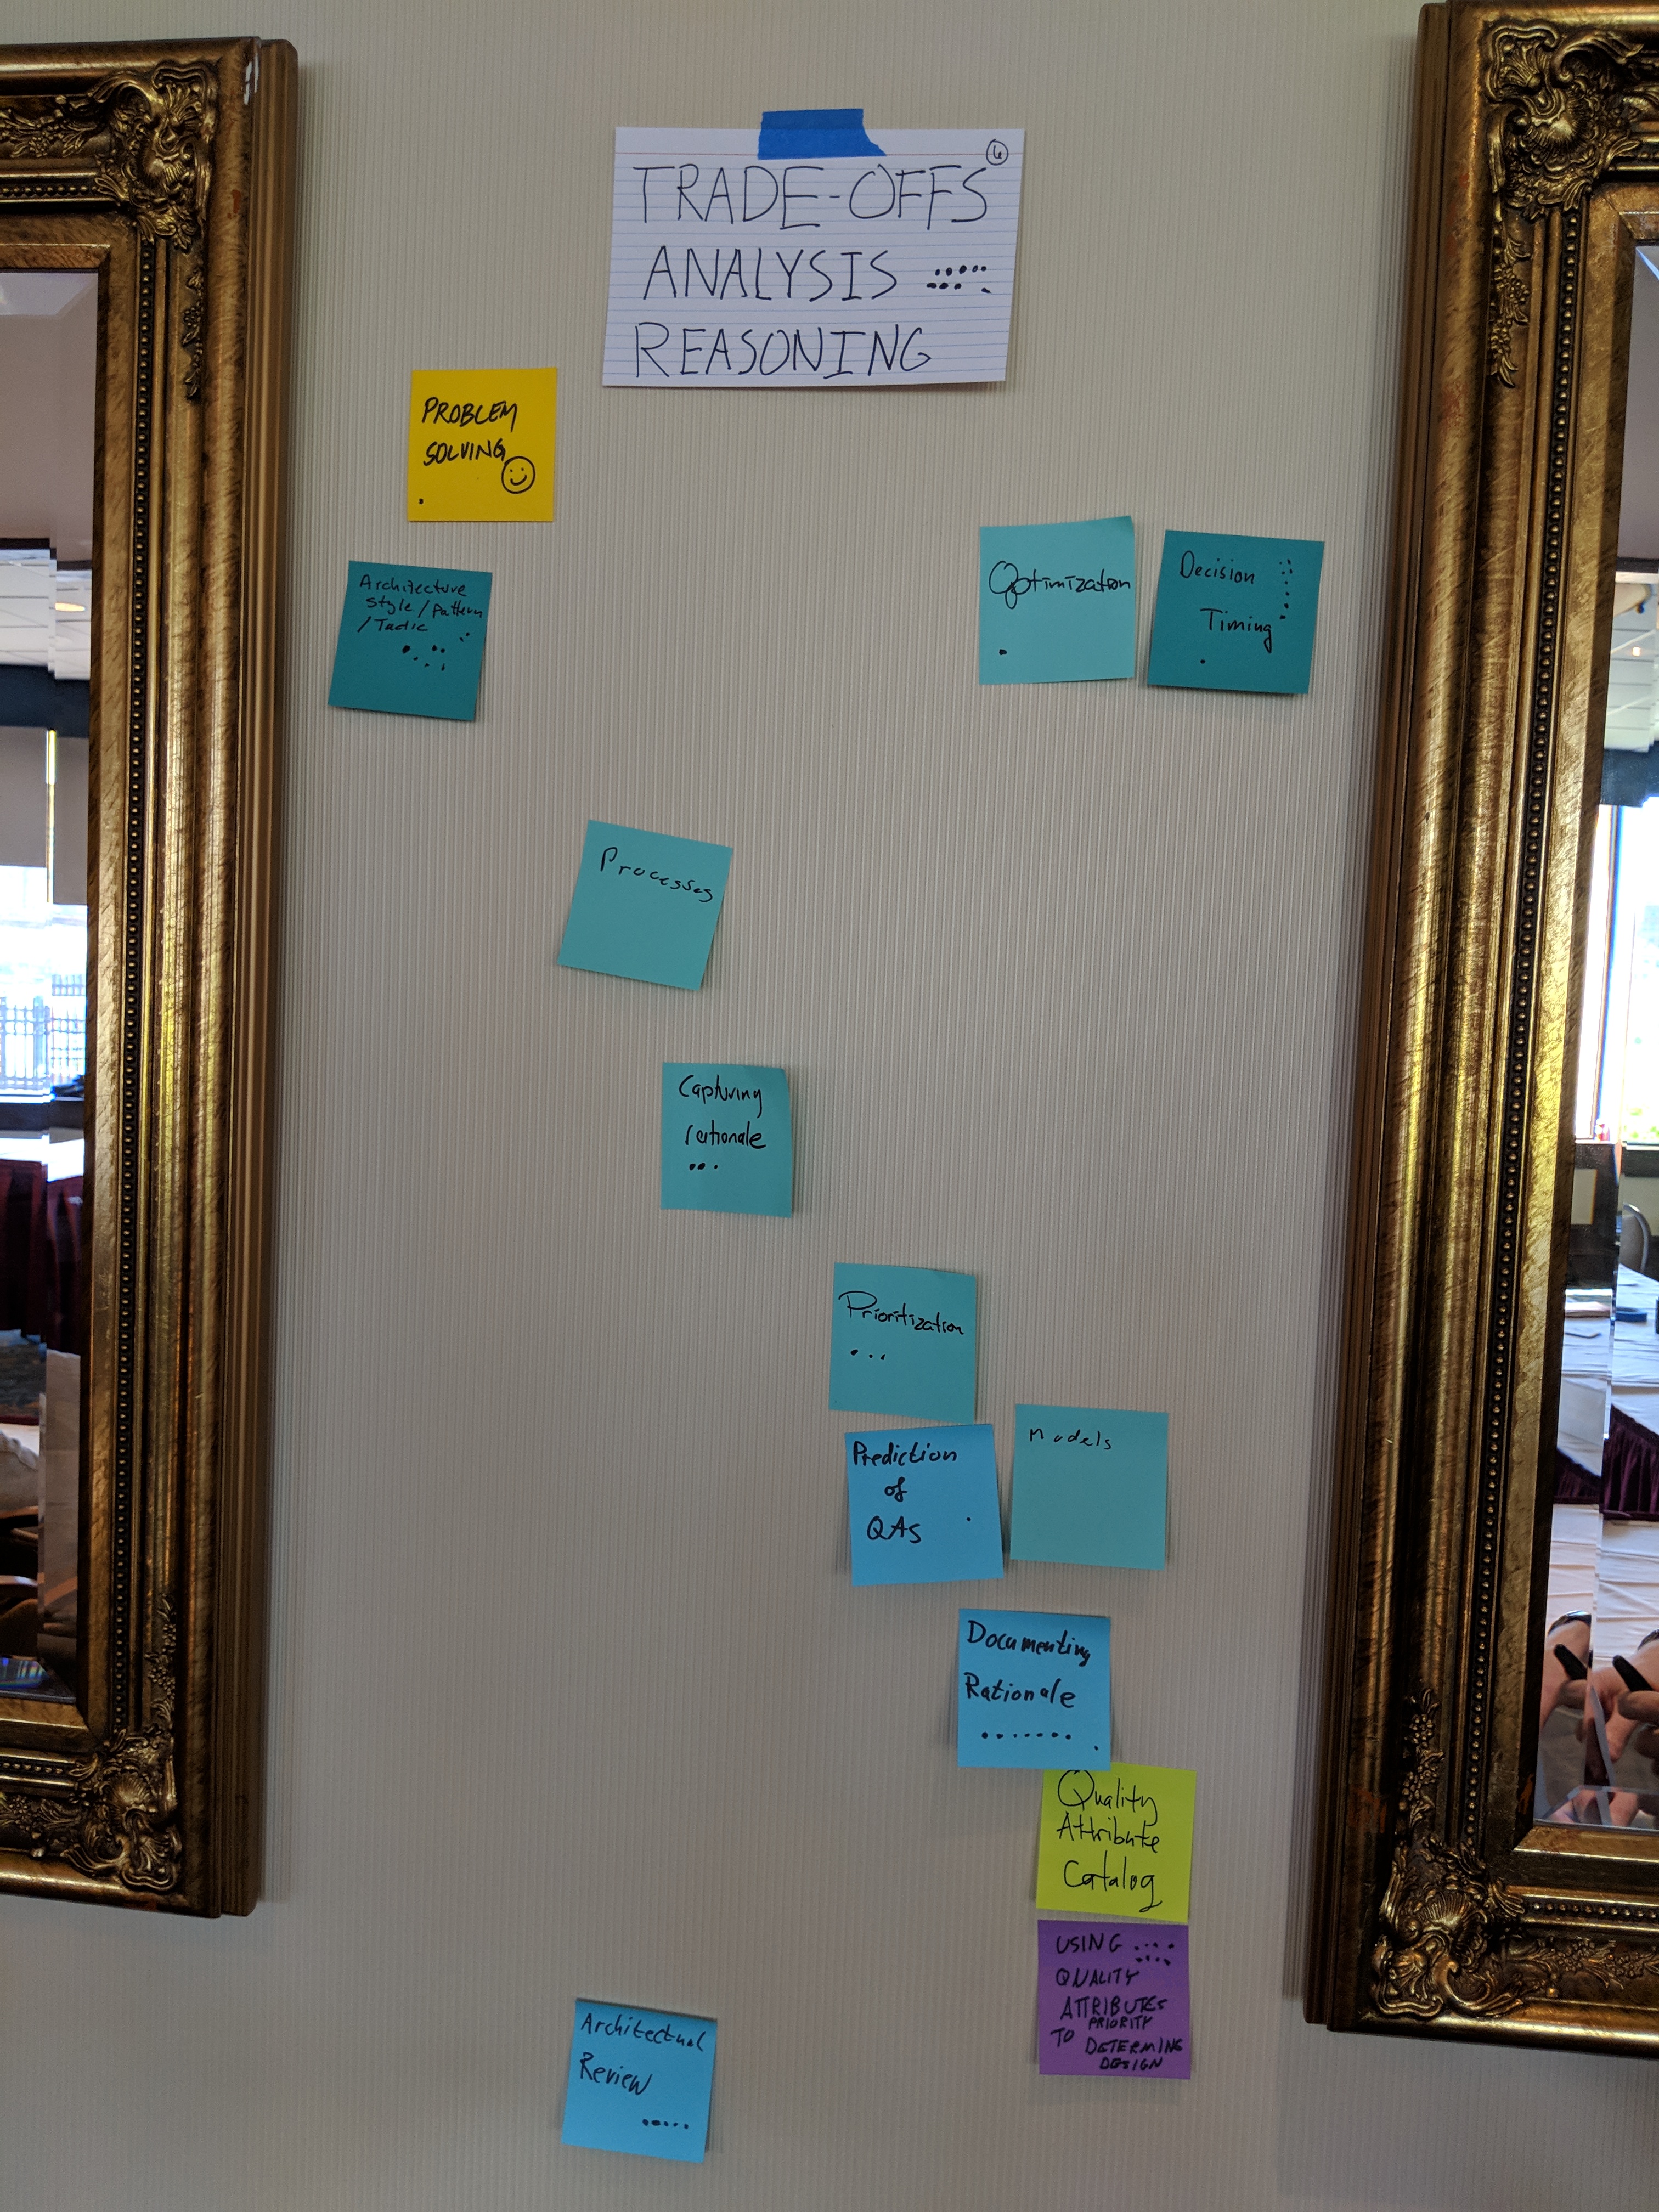 6
TRADE-OFFS
ANALYSIS
REASONING
PROBLEM
SOLVING
Architecture
style/pattern
/Tactic
Optimization
Decision
Timing
Processes
Capturing
rationale
Prioritization
Prediction
of
QAs
Models
Documenting
Rationale
Quality
Attribute
Catalog
USING
QUALITY
ATTRIBUTES
PRIORITY
TO DETERMINE
DESIGN
Architectual
Review